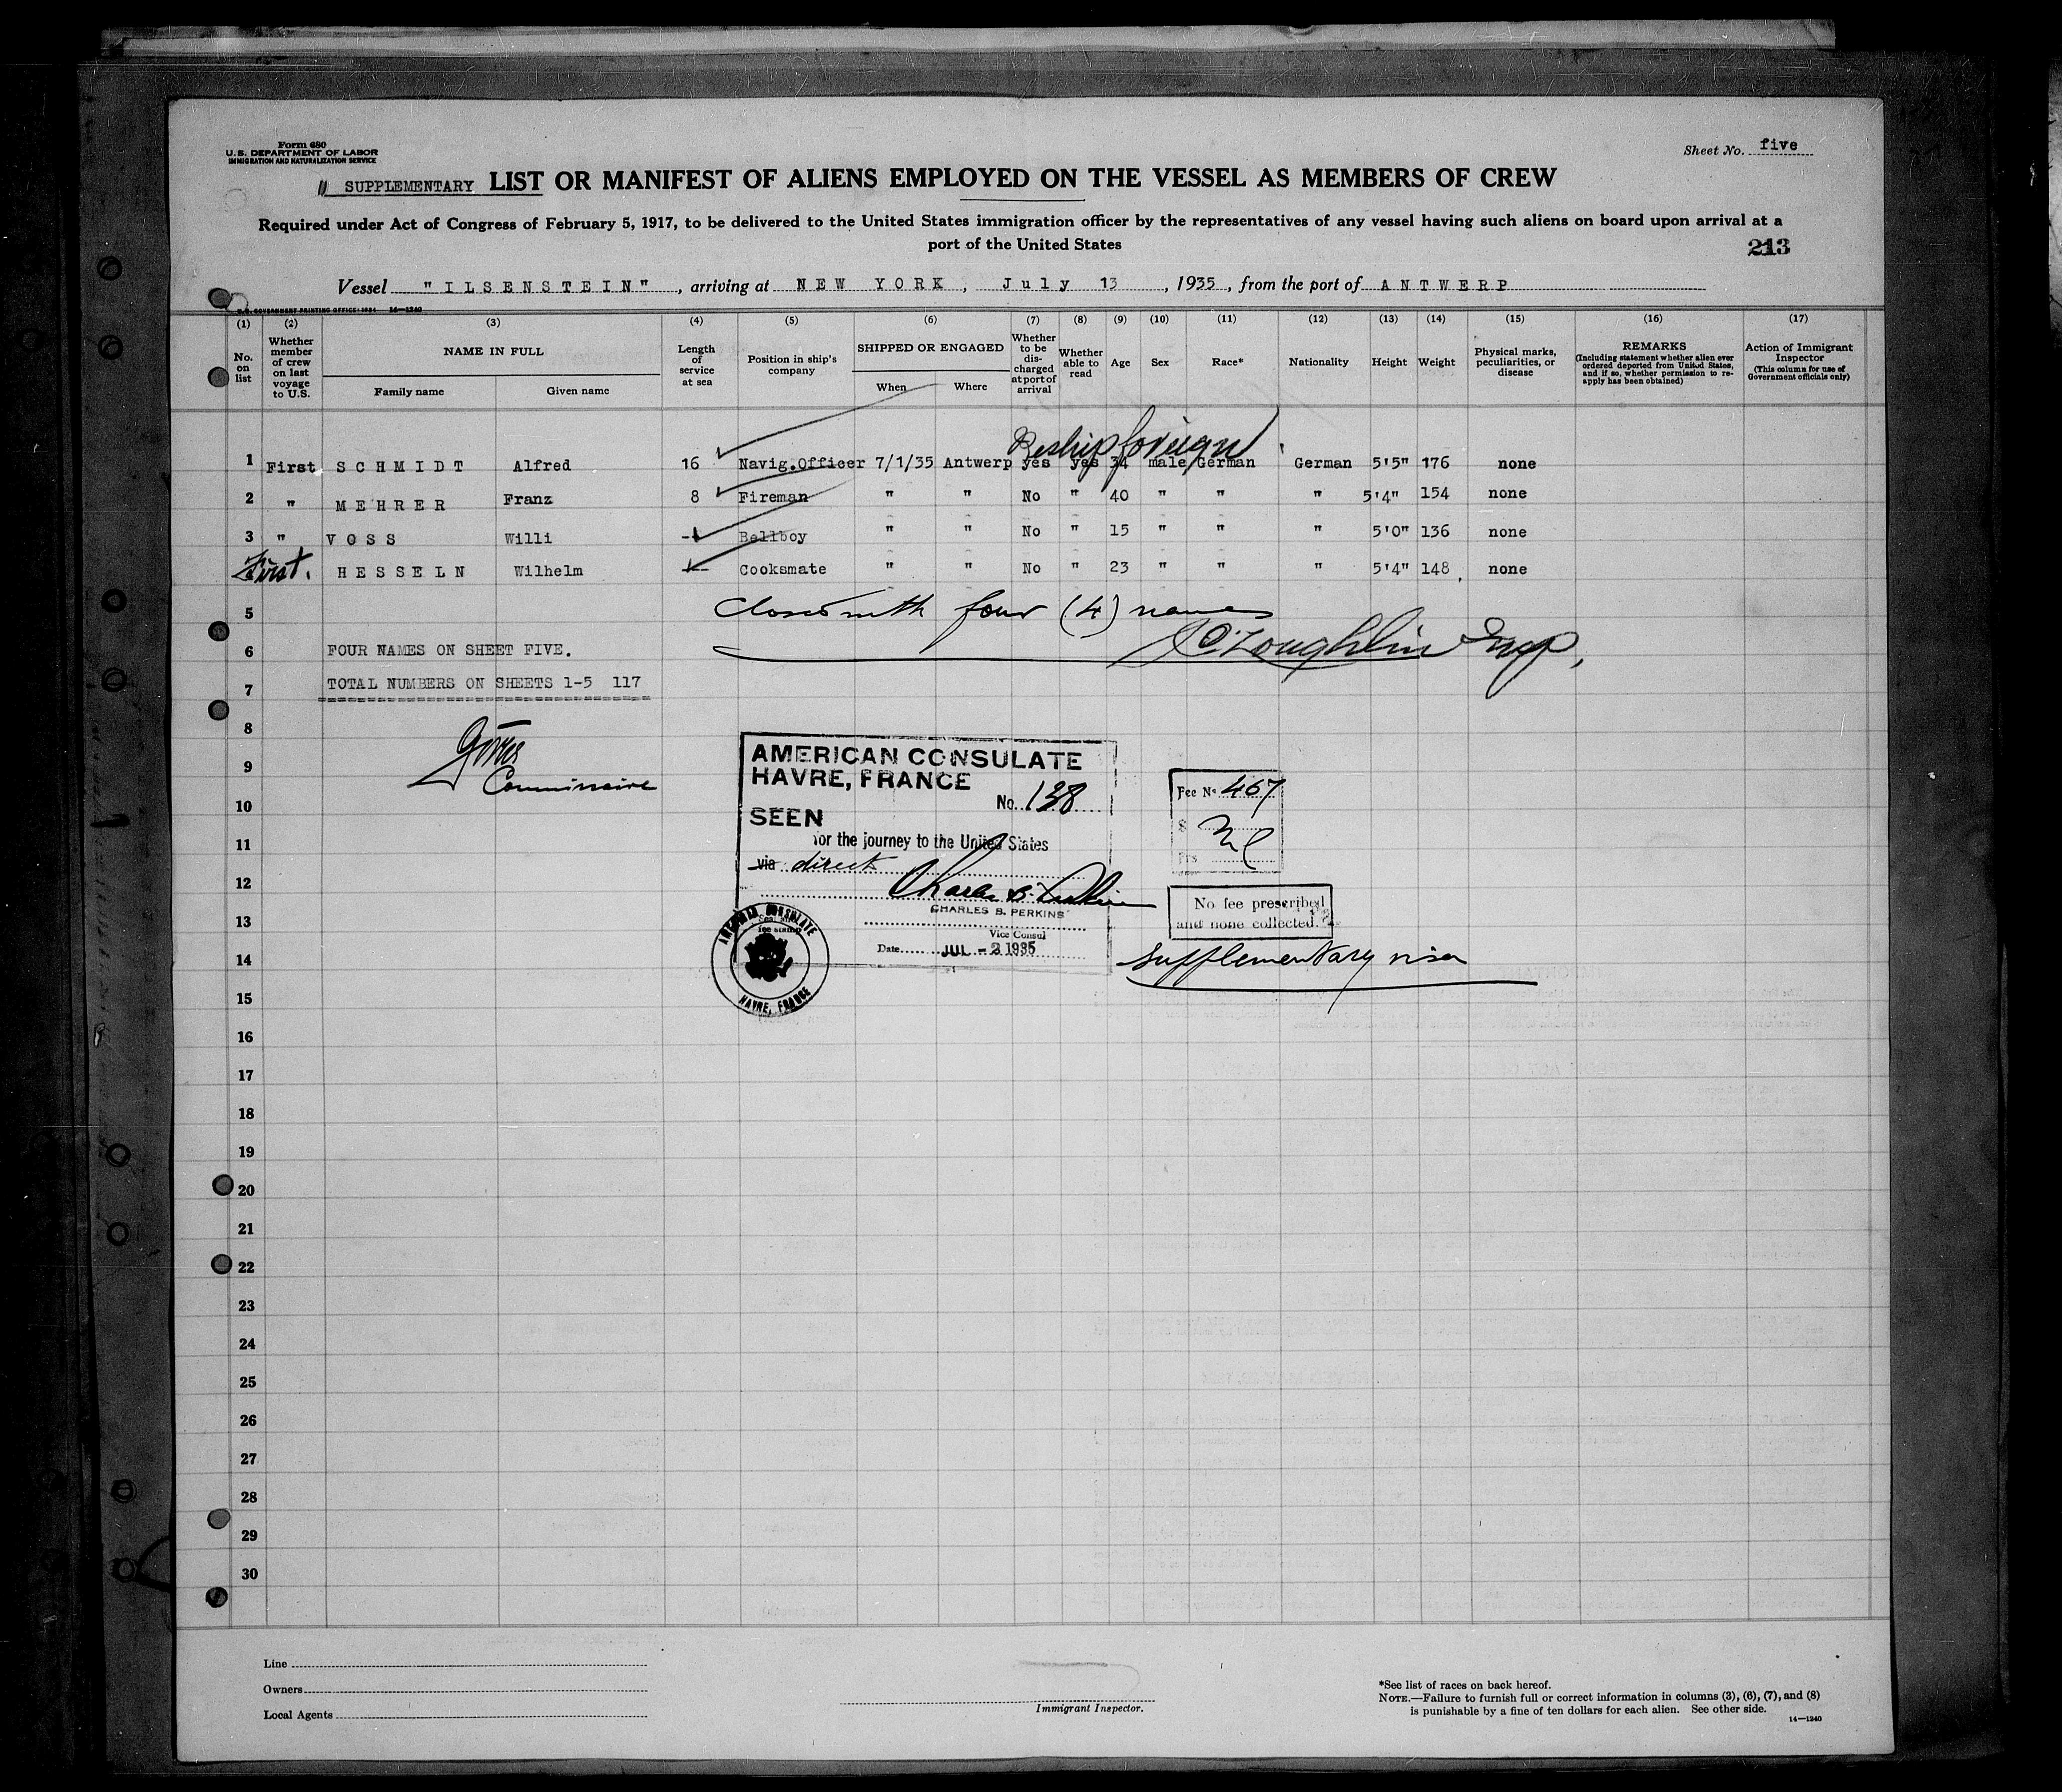 Form 680
U. S. DEPARTMENT OF LABOR
IMMIGRATION AND NATURALIZATION SERVICE
Sheet No. five
SUPPLEMENTARY LIST OR MANIFEST OF ALIENS EMPLOYED ON THE VESSEL AS MEMBERS OF CREW
Required under Act of Congress of February 5, 1917, to be delivered to the United States immigration officer by the representatives of any vessel having such aliens on board upon arrival at a
port of the United States
213
Vessel "ILSENSTEIN", arriving at NEW YORK, July 13, 1935, from the port of ANTWERP
U.S. GOVERNMENT PRINTING OFFICE: 1934 14—1240
(1) (2) (3) (4) (5) (6) (7) (8) (9) (10) (11) (12) (13) (14) (15) (16) (17)
No. on list
Whether member of crew on last voyage to U.S.
NAME IN FULL
Family name
Given name
Length of service at sea
Position in ship's company
SHIPPED OR ENGAGED
When
Where
Whether to be discharged at port of arrival
Whether able to read
Age
Sex
Race*
Nationality
Height
Weight
Physical marks, peculiarities, or disease
REMARKS
(Including statement whether alien ever ordered deported from United States, and if so, whether permission to reapply has been obtained)
Action of Immigrant Inspector
(This column for use of Government officials only)
Reship foreign
1 First SCHMIDT Alfred 16 Navig.Officer 7/1/35 Antwerp yes yes 34 male German German 5'5" 176 none
2 " MEHRER Franz 8 Fireman " " No " 40 " " " 5'4" 154 none
3 " VOSS Willi -- Bellboy " " No " 15 " " " 5'0" 136 none
First. HESSELN Wilhelm -- Cooksmate " " No " 23 " " " 5'4" 148 none
5 Closed with four (4) names
O'Loughlin Insp.
6 FOUR NAMES ON SHEET FIVE.
7 TOTAL NUMBERS ON SHEETS 1-5 117
8
9
Commissaire
10
11
12
13
14
15
16
17
18
19
20
21
22
23
24
25
26
27
28
29
30
AMERICAN CONSULATE
HAVRE, FRANCE
No. 138
SEEN
for the journey to the United States
via direct
Charles B. Perkins
CHARLES B. PERKINS
Vice Consul
Date JUL - 2 1935
AMERICAN CONSULATE
HAVRE, FRANCE
fee stamp
Fee No 467
$ Nil
Frs
No fee prescribed
and none collected.
Supplementary visa
Line
Owners
Local Agents
Immigrant Inspector.
*See list of races on back hereof.
NOTE.—Failure to furnish full or correct information in columns (3), (6), (7), and (8)
is punishable by a fine of ten dollars for each alien. See other side.
14—1240